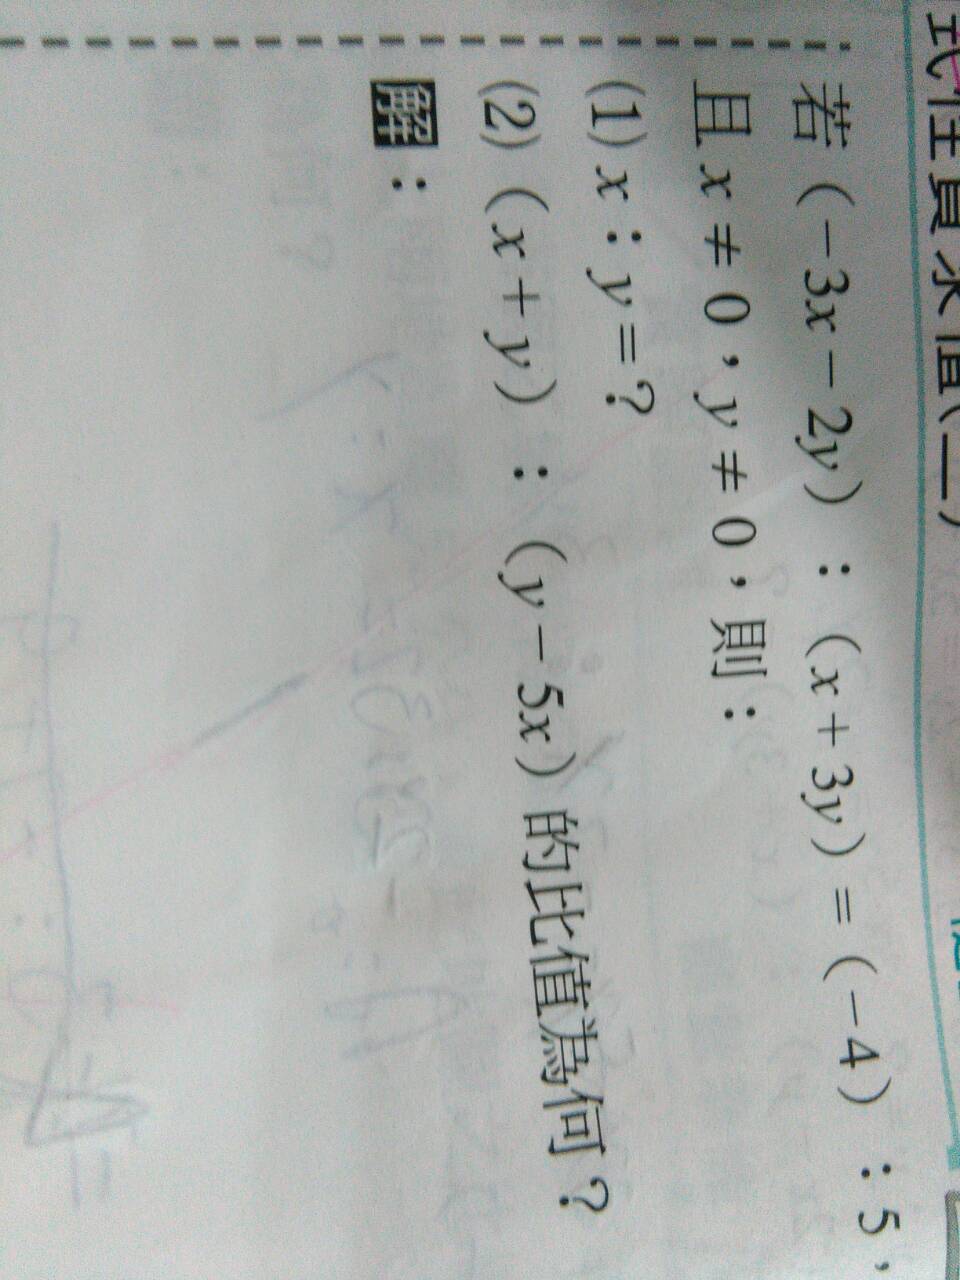 若(-3x-2y):(x+3y)=(-4):5,
且x≠0,y≠0,則:
(1) x:y=?
(2) (x+y):(y-5x)的比值為何?
解: